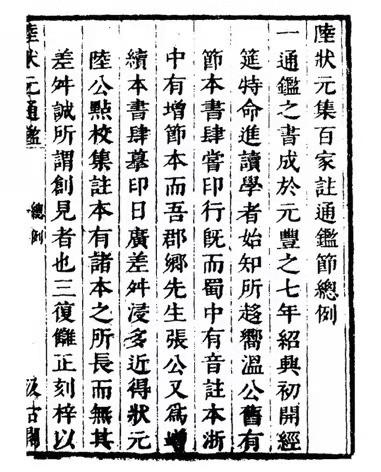 陸狀元集百家註通鑑節總例
一通鑑之書成於元豐之七年紹興初開經
筵特命進讀學者始知所趍嚮溫公舊有
節本書肆嘗印行旣而蜀中有音註本浙
中有增節本而吾郡鄉先生張公又為增
續本書肆摹印日廣差舛浸多近得狀元
陸公點校集註本有諸本之所長而無其
差舛誠所謂創見者也三復讎正刻梓以
陸狀元通鑑 總例 汲古閣